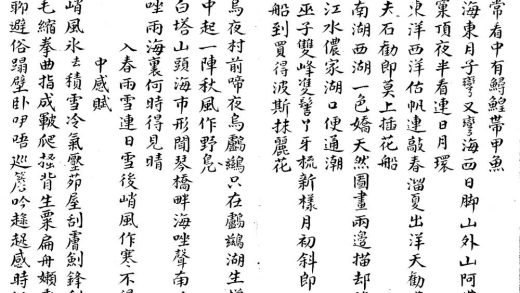 常看中有鱘鰉帶甲魚
海東月子彎又彎海西日脚山外山阿
窠頂夜半看連日月環
東洋西洋估帆連敲春溜夏出洋天勸
夫石勸郎莫上插花船
南湖西湖一色嬌天然圖畫兩邊描却
江水儂家湖口便通潮
巫子雙峰雙髻丫牙梳新樣月初斜郎
船到買得波斯抹麗花
烏夜村前啼夜烏鸕鷀只在鸕鷀湖生
中起一陣秋風作野鳧
白塔山頭海市形閩琴橋畔海唑聲南
唑兩海裏何時得見晴
入春雨雪連日雪後峭風作寒不
中感賦
峭風永去積雪冷氣壓茆屋刮膚劍鋒
毛縮拳曲指成皸爬搔背生粟扁舟嬾
聊避俗蹋壁卧吚唔巡簷吟趦趄感時